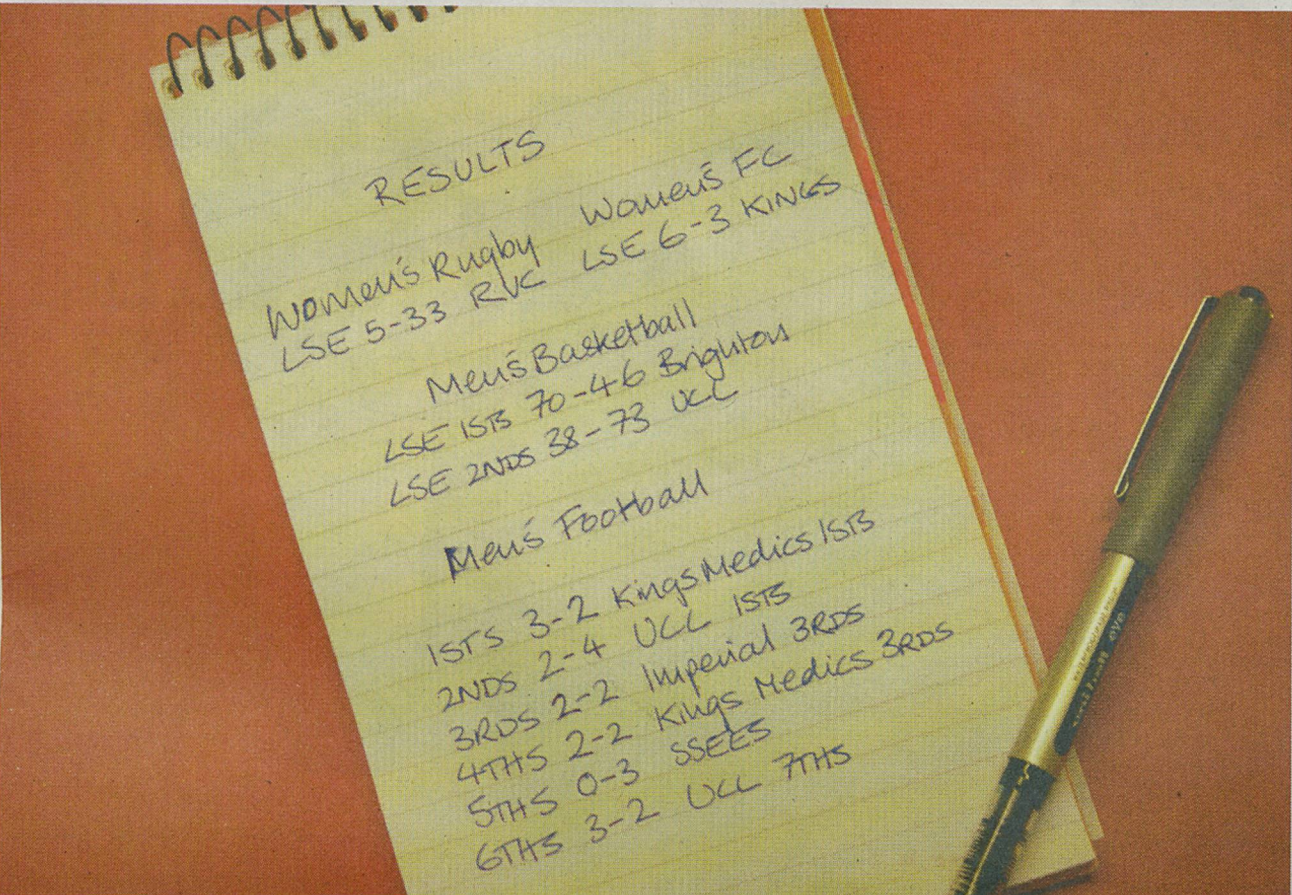 RESULTS
Women's Rugby
LSE 5-33 RVC
Women's FC
LSE 6-3 KINGS
Men's Basketball
LSE 1STS 70-46 Brighton
LSE 2NDS 38-73 UCL
Men's Football
1STS 3-2 Kings Medics 1STS
2NDS 2-4 UCL 1STS
3RDS 2-2 Imperial 3RDS
4THS 2-2 Kings Medics 3RDS
5THS 0-3 SSEES
6THS 3-2 UCL 7THS
eye